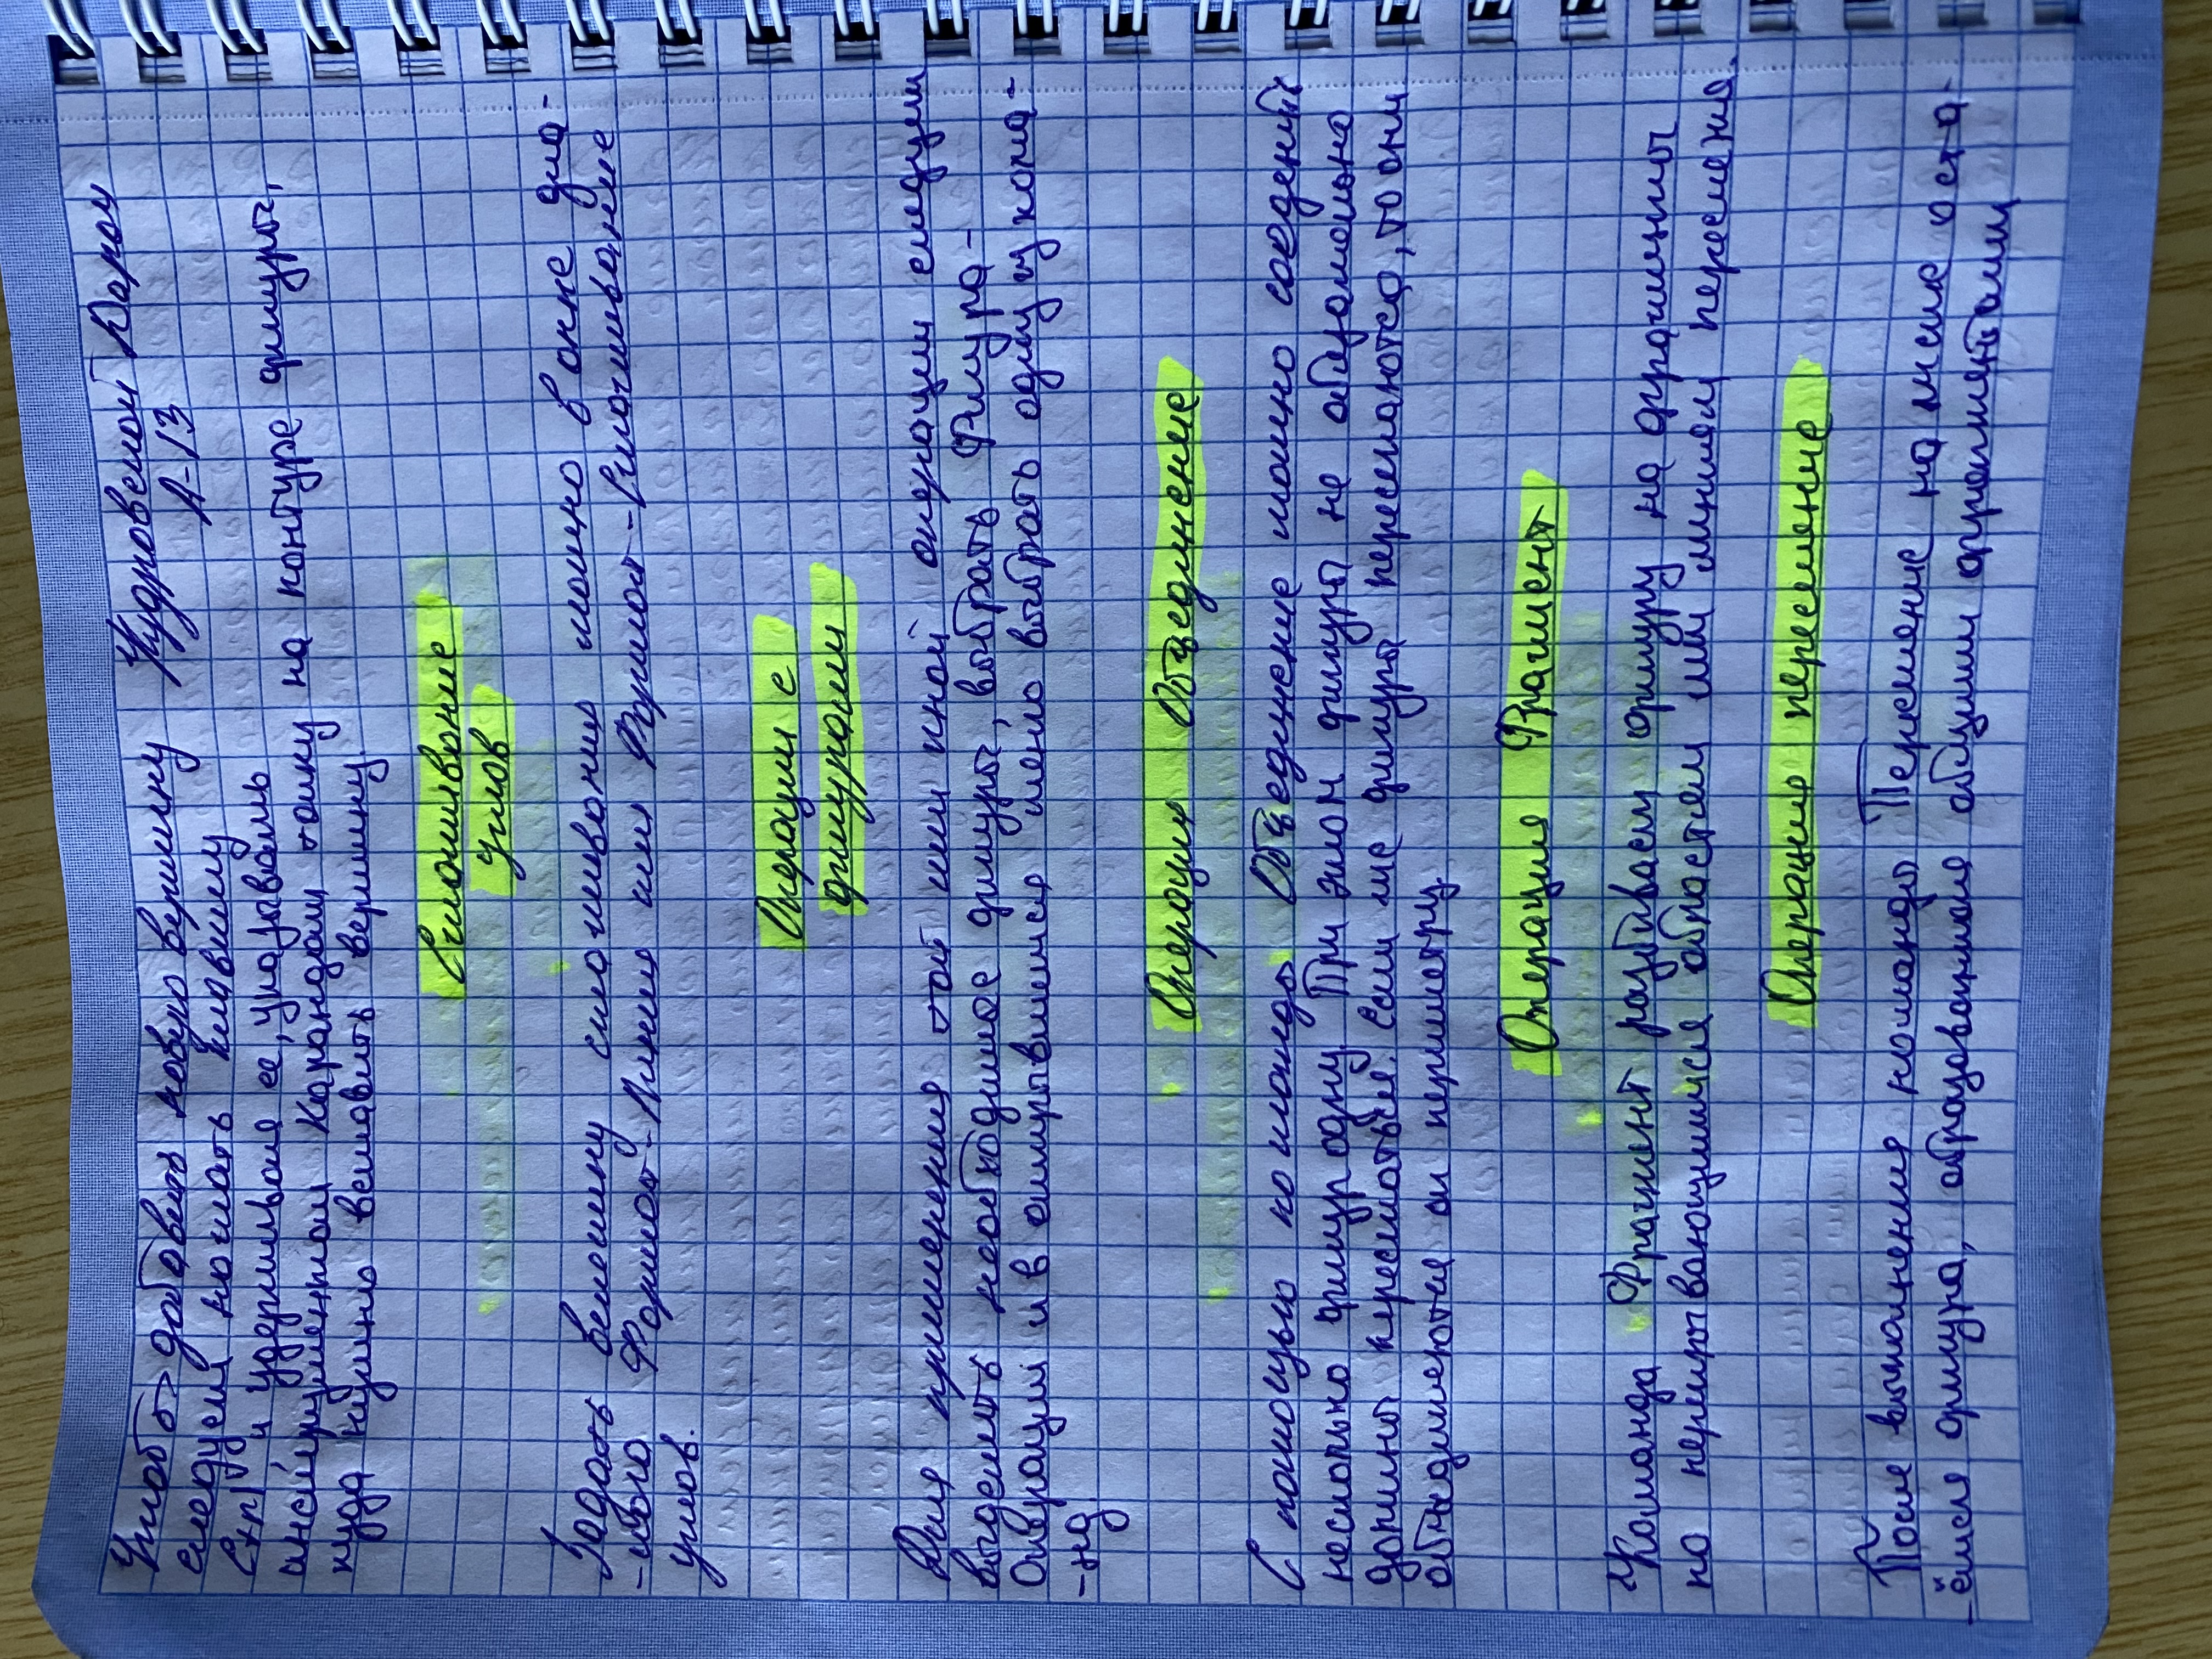 Чтобы добавить новую вершину Кудровской Дарьи
следует нажать клавишу А-13
Ctrl и удерживая её, указатель
инструментом Карандаш точку на контуре фигуры,
куда нужно вставить вершину.
Сглаживание
углов
Задать величину сглаживания можно в окне диа-
-лога Формат-Линия или Формат-Сглаживание
углов.
Операции с
фигурами
Для применения той или иной операции следует
выделить необходимое фигуры, выбрать Фигура-
Операции и в открывшемся меню выбрать одну из кома-
-нд
Операция Объединение
С помощью команды Объединение можно соединить
несколько фигур одну. При этом фигуры не обязательно
должны пересекаться. Если же фигуры пересекаются, то они
объединяются по периметру.
Операция Фрагмент
Команда Фрагмент разбивает фигуру на фрагменты
по перекрывающимся областям или линиям пересечения.
Операция пересечение
После выполнения команды Пересечение на листе оста-
-ётся фигура, образованная общими фрагментами